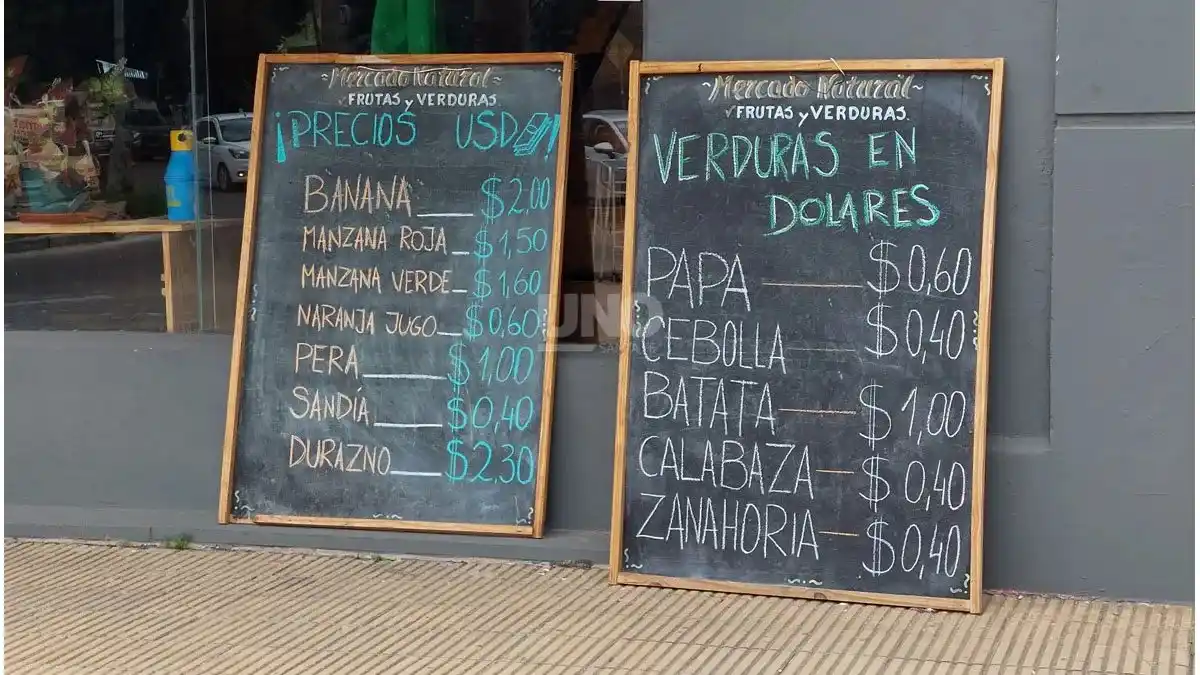 Mercado Natural
FRUTAS y VERDURAS
¡PRECIOS USD!
BANANA $2.00
MANZANA ROJA $1,50
MANZANA VERDE $1,60
NARANJA JUGO $0,60
PERA $1,00
SANDÍA $0,40
DURAZNO $2,30
Mercado Natural
FRUTAS y VERDURAS
VERDURAS EN
DOLARES
PAPA $0,60
CEBOLLA $0,40
BATATA $1,00
CALABAZA $0,40
ZANAHORIA $0,40
UNO